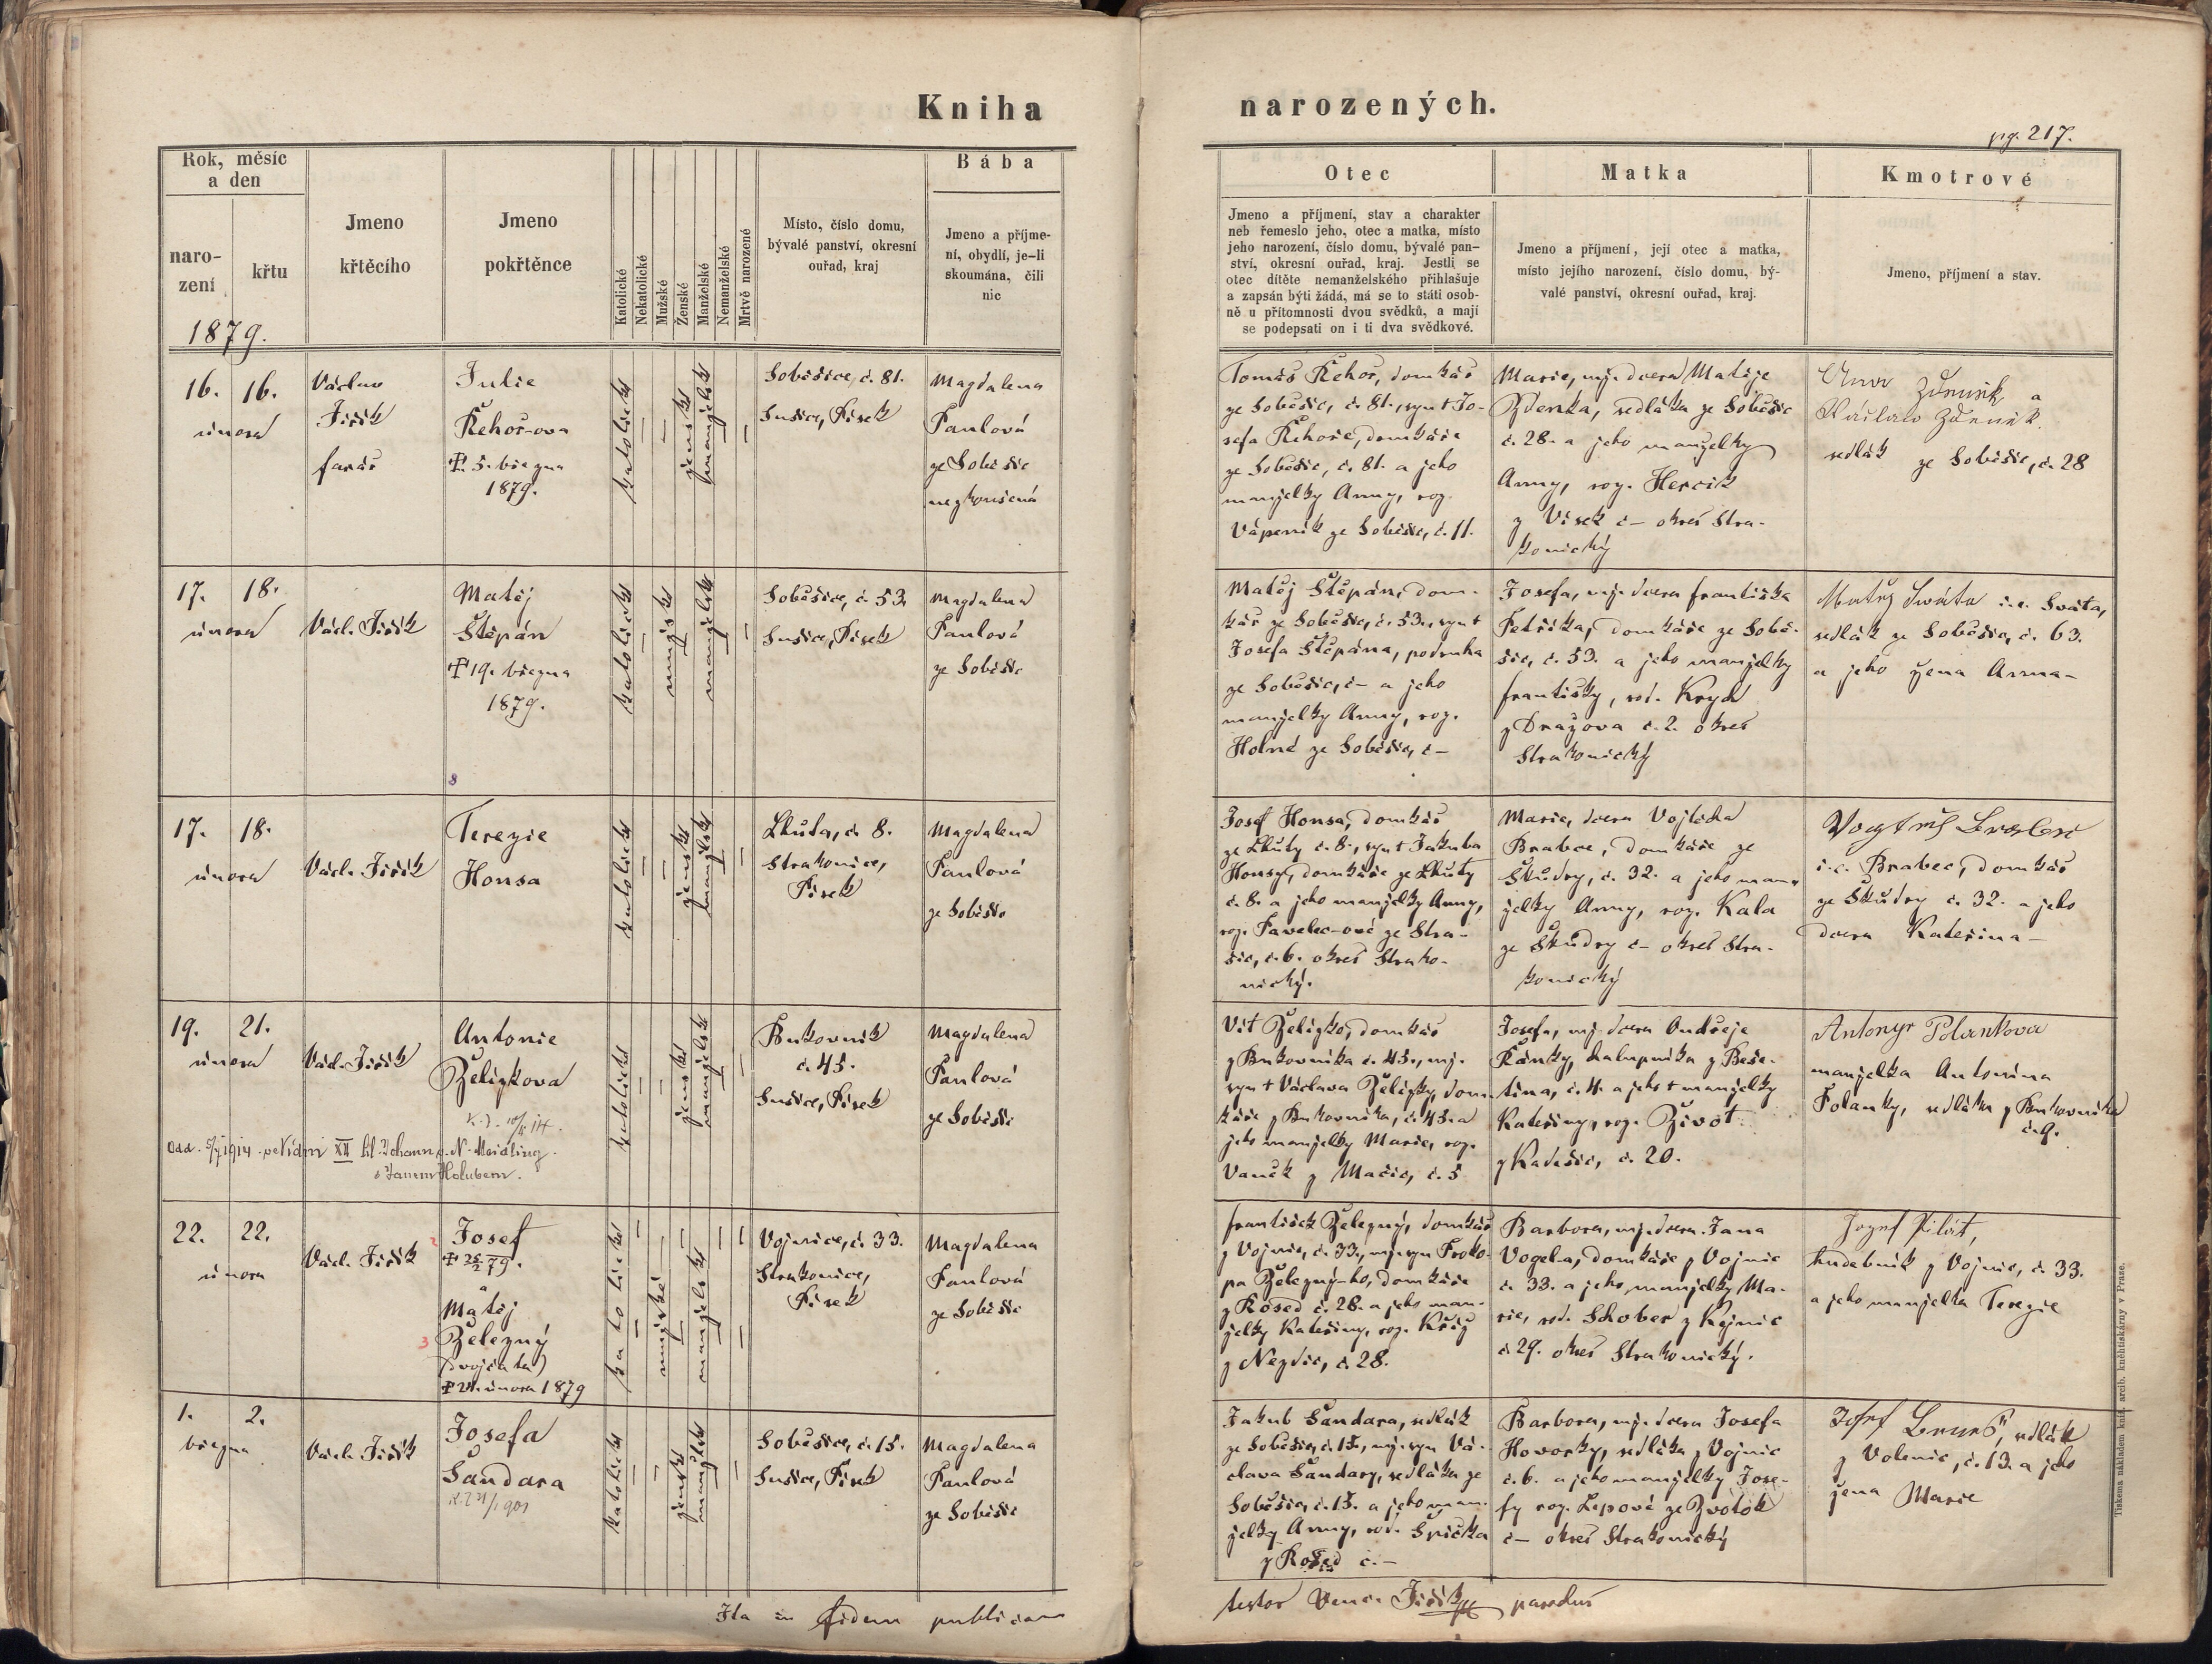 Kniha
narozených.
pg. 217.
Rok, měsíc
a den
naro-
zení
křtu
1879.
Jmeno
křtěcího
Jmeno
pokřtěnce
Katolické
Nekatolické
Mužské
Ženské
Manželské
Nemanželské
Mrtvě narozené
Místo, číslo domu,
bývalé panství, okresní
ouřad, kraj
Bába
Jmeno a příjme-
ní, obydlí, je-li
skoumána, čili
nic
Otec
Jmeno a příjmení, stav a charakter
neb řemeslo jeho, otec a matka, místo
jeho narození, číslo domu, bývalé pan-
ství, okresní ouřad, kraj. Jestli se
otec dítěte nemanželského přihlašuje
a zapsán býti žádá, má se to státi osob-
ně u přítomnosti dvou svědků, a mají
se podepsati on i ti dva svědkové.
Matka
Jmeno a příjmení, její otec a matka,
místo jejího narození, číslo domu, bý-
valé panství, okresní ouřad, kraj.
Kmotrové
Jmeno, příjmení a stav.
16. 16.
února
Václav
Jiřík
farář
Julie
Řehoř-ova
5. března
1879.
katolické
ženské
manželské
Soběšice, č. 81.
Sušice, Písek
Magdalena
Paulová
ze Soběšic
nezkoušená
Tomáš Řehoř, domkář
ze Soběšic, č. 81., syn † Jo-
sefa Řehoře, domkáře
ze Soběšic, č. 81. a jeho
manželky Anny, roz.
Vápeník ze Soběšic, č. 11.
Marie, mj. dcera Matěje
Zdenka, sedláka ze Soběšic
č. 28. a jeho manželky
Anny, roz. Hercik
z Vísek č – okres Stra-
konický
Anna Zdenik a
Václav Zdenik.
sedlák ze Soběšic, č. 28
17. 18.
února
Václ. Jiřík
Matěj
Štěpán
19. března
1879.
katolické
mužské
manželské
Soběšice, č 53.
Sušice, Písek
Magdalena
Paulová
ze Soběšic
Matěj Štěpán, dom-
kář ze Soběšic, č. 53., syn †
Josefa Štěpána, podruha
ze Soběšic, č – a jeho
manželky Anny, roz.
Holné ze Soběšic, č –
Josefa, mj. dcera Františka
Petříka, domkáře ze Sobě-
šic, č. 53. a jeho manželky
Františky, roz. Kryd
z Dražova č. 2. okres
Strakonický
Matěj Swáta i.e. Sváta,
sedlák ze Soběšic, č. 63.
a jeho žena Anna –
8
17. 18.
února
Václ. Jiřík
Terezie
Honsa
katolické
ženské
manželské
Lhůta, č. 8.
Strakonice,
Písek
Magdalena
Paulová
ze Soběšic
Josef Honsa, domkář
ze Lhůty č. 8., syn † Jakuba
Honsy, domkáře ze Lhůty
č. 8. a jeho manželky Anny,
roz. Pavelec-ové ze Stra-
šic, č. 6. okres Strako-
nický.
Marie, dcera Vojtěcha
Brabce, domkáře ze
Škůdry, č. 32. a jeho man-
želky Anny, roz. Kala
ze Škůdry č – okres Stra-
konický
i.e. Brabec, domkář
ze Škůdry č. 32. a jeho
dcera Kateřina –
19. 21.
února
Václ. Jiřík
Antonie
Želizkova
Odd. 5/7 1914 ve Vídni XII hl. Johann v. N. Meidling.
s Janem Holubem.
katolické
ženské
manželské
Bukovník
č. 45.
Sušice, Písek
Magdalena
Paulová
ze Soběšic
Vít Želizko, domkář
z Bukovníka č. 45., mj.
syn † Václava Želízky, dom-
káře z Bukovníka, č. 45. a
jeho manželky Marie, roz.
Vaněk z Mačic, č. 5
Josefa, mj. dcera Ondřeje
Řánky, chalupníka z Beše-
tína, č. 4. a jeho † manželky
Kateřiny, roz. Život
z Kadešic, č. 20.
Antonyr Polankova
manželka Antonína
Polanky, sedláka z Bukovníka
č. 9.
22. 22.
února
Václ. Jiřík
2
Josef
25/2 79.
a
3
Matěj
Železný
(dvojčata)
21. února 1879
katolické
mužské
manželské
Vojnice, č. 33.
Strakonice,
Písek
Magdalena
Paulová
ze Soběšic
František Železný, domkář
z Vojnic, č. 33., mj. syn Proko-
pa Železný-ho, domkáře
z Rosed č. 28. a jeho man-
želky Kateřiny, roz. Kříž
z Nezdic, č. 28.
Barbora, mj. dcera Jana
Vogela, domkáře z Vojnic
č. 33. a jeho manželky Ma-
rie, roz. Schober z Kejnic
č. 29. okres Strakonický.
Jozef Pilát,
hudebník z Vojnic, č. 33.
a jeho manželka Terezie
1. 2.
března
Václ. Jiřík
Josefa
Šandara
katolické
ženské
manželské
Soběšice, č. 15.
Sušice, Písek
Magdalena
Paulová
ze Soběšic
Jakub Šandara, sedlák
ze Soběšic, č. 15., mj. syn Vá-
clava Šandary, sedláka ze
Soběšic, č. 15. a jeho man-
želky Anny, roz. Špička
z Rosed č. –
Barbora, mj. dcera Josefa
Hovorky, sedláka z Vojnic
č. 6. a jeho manželky Jose-
fy roz. Lepové ze Zvotok
č – okres Strakonický
sedlák
z Volenic, č. 13. a jeho
žena Marie
Ita in fidem publicam
testor Venc. Jiřík parochus
Tiskem a nákladem kníž. arcib. kněhtiskárny v Praze.